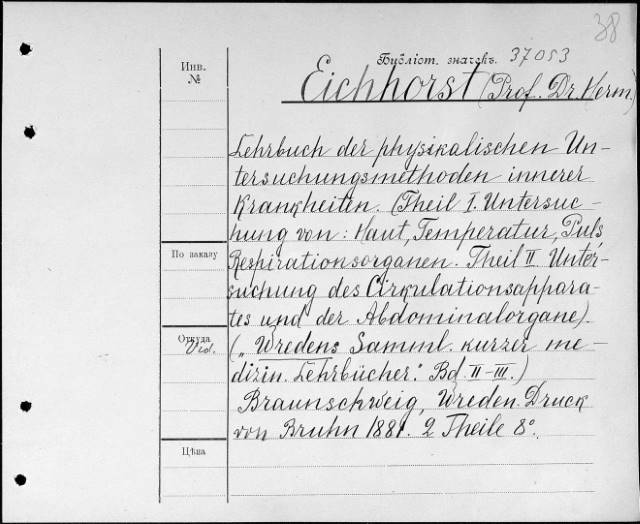 38
Библіот. значекъ. 37053
Инв.
№
Eichhorst (Prof. Dr. Herm)
Lehrbuch der physikalischen Un-
tersuchungsmethoden innerer
Krankheiten. (Theil I. Untersuc-
hung von: Haut, Temperatur, Puls
По заказу
Respirationsorganen. Theil II Unter-
suchung des Cirkulationsappara-
tes und der Abdominalorgane).
Откуда
Vid.
(„Wredens Samml. kurzer me-
dizin. Lehrbücher": Bd. II-III.)
Braunschweig, Wreden. Druck
von Bruhn 1881. 2 Theile 8°.
Цѣна